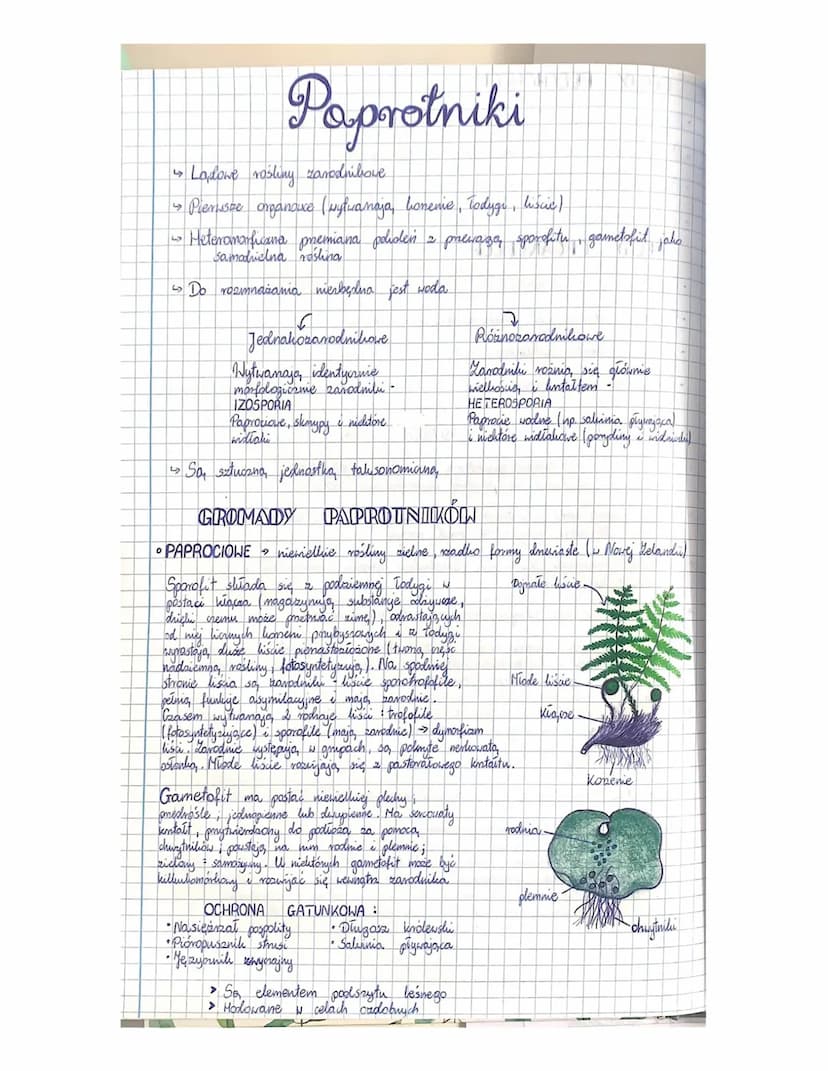 Paprotniki
↳ Lądowe rośliny zarodnikowe
↳ Pierwsze organowce (wytwarzają korzenie, łodygi, liście)
↳ Heteromorficzna przemiana pokoleń z przewagą sporofitu, gametofit jako
samodzielna roślina
↳ Do rozmnażania niezbędna jest woda
Jednakozarodnikowe
Wytwarzają identycznie
morfologicznie zarodniki -
IZOSPORIA
Paprociowe, skrzypy i niektóre
widłaki
Różnozarodnikowe
Zarodniki rożnią się głównie
wielkością i kształtem -
HETEROSPORIA
Paprocie wodne (np. salwinia pływająca)
i niektóre widłakowe (porybliny i widliczki)
↳ Są sztuczną jednostką taksonomiczną
GROMADY PAPROTNIKÓW
• PAPROCIOWE → niewielkie rośliny zielne, rzadko formy drzewiaste (w Nowej Zelandii)
Sporofit składa się z podziemnej łodygi w
postaci kłącza (magazynują substancje odżywcze,
dzięki czemu może przetrwać zimę), odrastających
od niej licznych korzeni przybyszowych i z łodygi
wyrastają duże liście pierzastozłożone (tworzą część
nadziemną rośliny, fotosyntetyzują). Na spodniej
stronie liścia są zarodniki - liście sporotrofofile,
pełnią funkcje asymilacyjne i mają zarodnie.
Czasem wytwarzają 2 rodzaje liści : trofofile
(fotosyntetyzujące) i sporofile (mają zarodnie) → dymorfizm
liści. Zarodnie występują w grupach, są pokryte nerkowatą
osłonką. Młode liście rozwijają się z pastorałowego kształtu.
Dojrzałe liście
Młode liście
Kłącze
Korzenie
Gametofit ma postać niewielkiej plechy ;
przedrośle ; jednopienne lub dwupienne. Ma sercowaty
kształt, przytwierdzony do podłoża za pomocą
chwytników ; powstają na nim rodnie i plemnie ;
zielony = samożywny. U niektórych gametofit może być
kilkukomórkowy i rozwijać się wewnątrz zarodnika
rodnia
plemnie
chwytniki
OCHRONA GATUNKOWA :
• Nasięźrzał pospolity
• Pióropusznik strusi
• Języcznik zwyczajny
• Długosz królewski
• Salwinia pływająca
> Są elementem podszytu leśnego
> Hodowane w celach ozdobnych